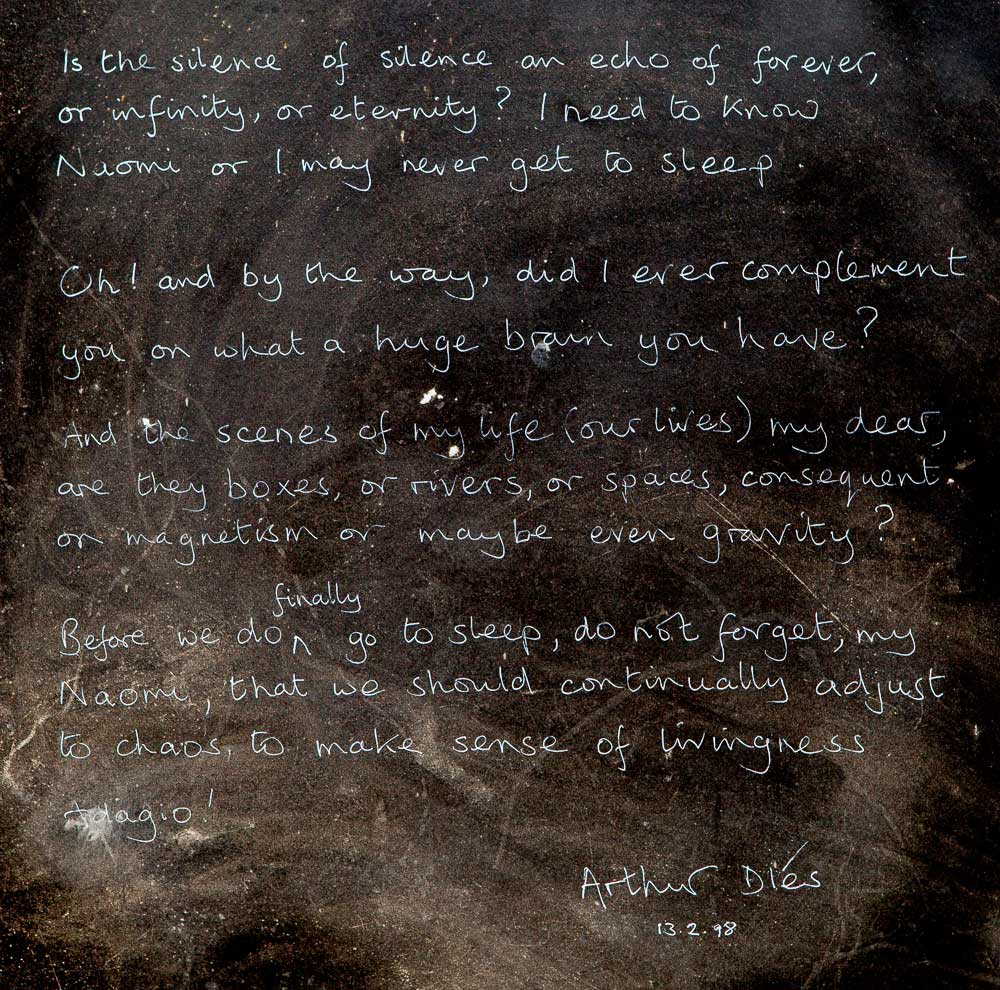 Is the silence of silence an echo of forever,
or infinity, or eternity? I need to know
Naomi or I may never get to sleep.
Oh! and by the way, did I ever complement
you on what a huge brain you have?
And the scenes of my life (our lives) my dear,
are they boxes, or rivers, or spaces, consequent
on magnetism or maybe even gravity?
finally
Before we do ^ go to sleep, do not forget, my
Naomi, that we should continually adjust
to chaos, to make sense of livingness.
Adagio!
Arthur Diés
13.2.98